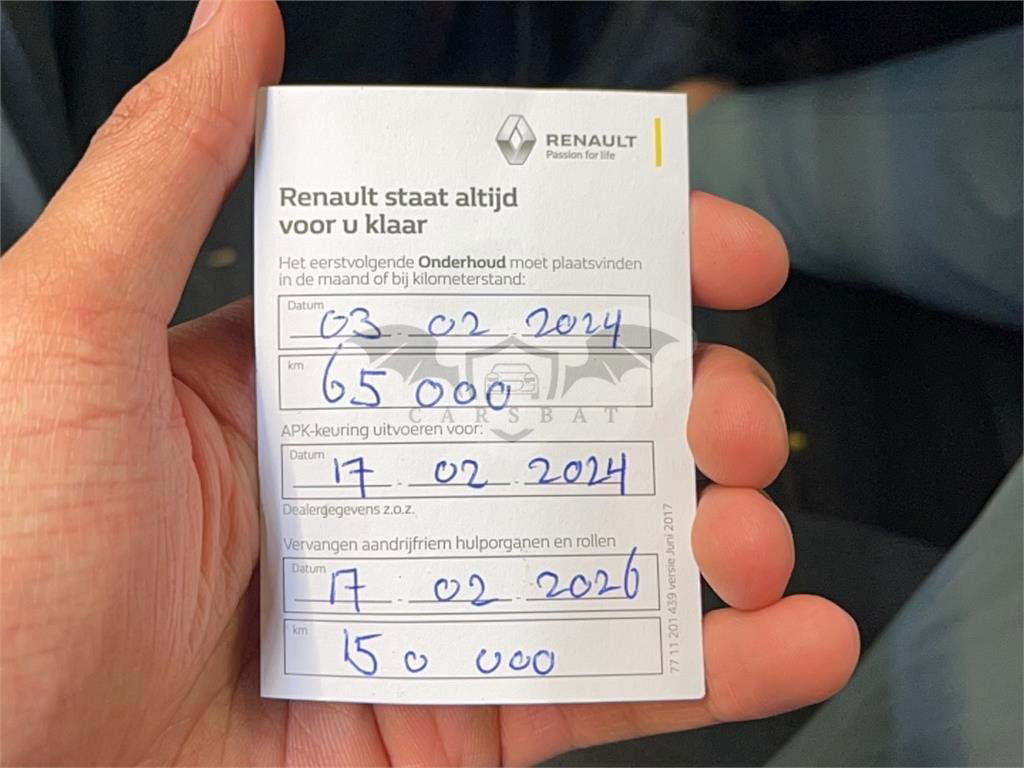 RENAULT
Passion for life
Renault staat altijd
voor u klaar
Het eerstvolgende Onderhoud moet plaatsvinden
in de maand of bij kilometerstand:
Datum
03 02 2024
km
65 000
CARSBAT
APK-keuring uitvoeren voor:
Datum
17 02 2024
Dealergegevens z.o.z.
Vervangen aandrijfriem hulporganen en rollen
Datum
17 02 2026
km
150 000
77 11 201 439 versie Juni 2017